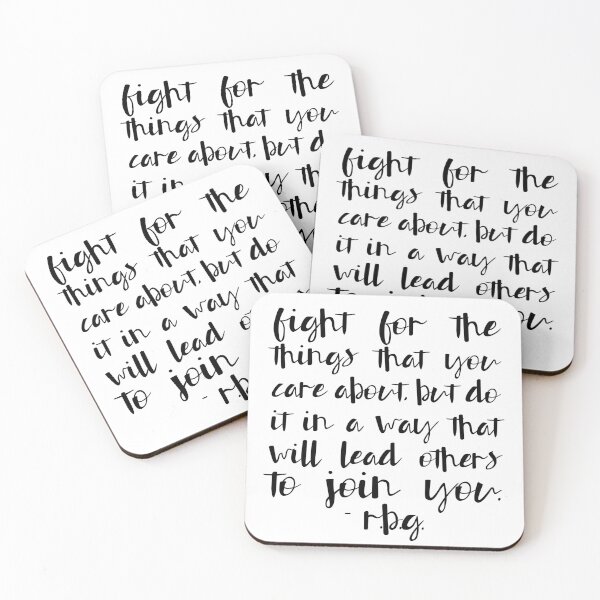 fight for the
things that you
care about, but
it in
fight for the
things that you
care about, but do
it in a way that
will lead others
fight for the
things that you
care about, but do
it in a way that
will lead
to join
- r.b.g.
fight for the
things that you
care about, but do
it in a way that
will lead others
to join you.
- r.b.g.